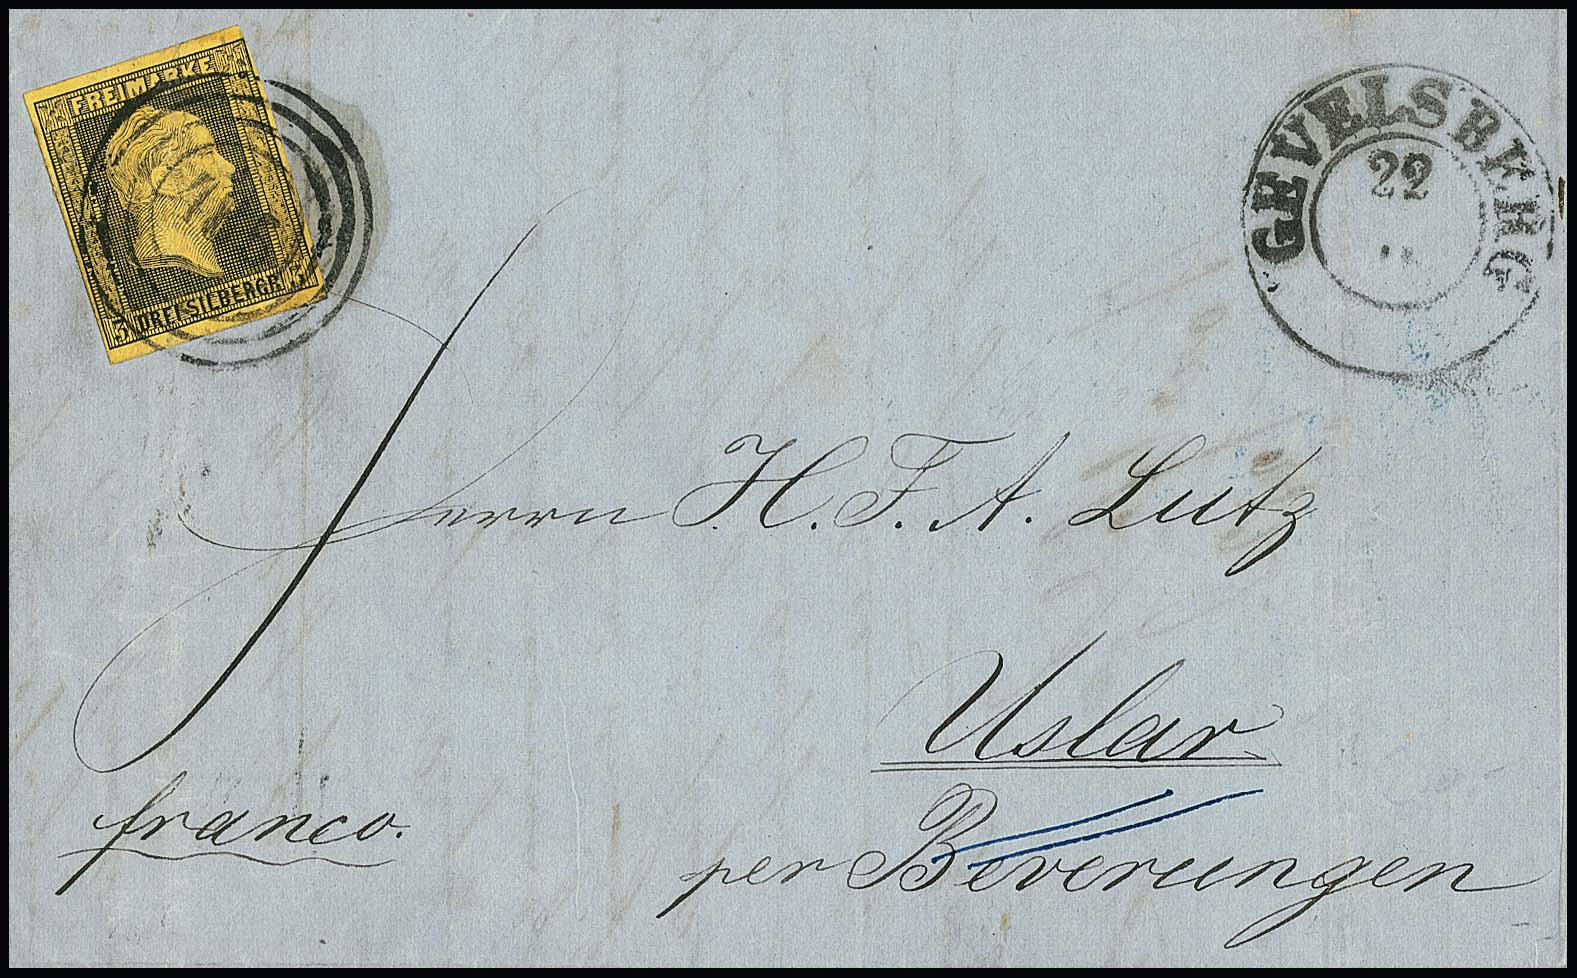 FREIMARKE
3 DREI SILBERGR. 3
GEVELSBERG
22
Herrn H. F. A. Lutz
Uslar
franco.
per Beverungen